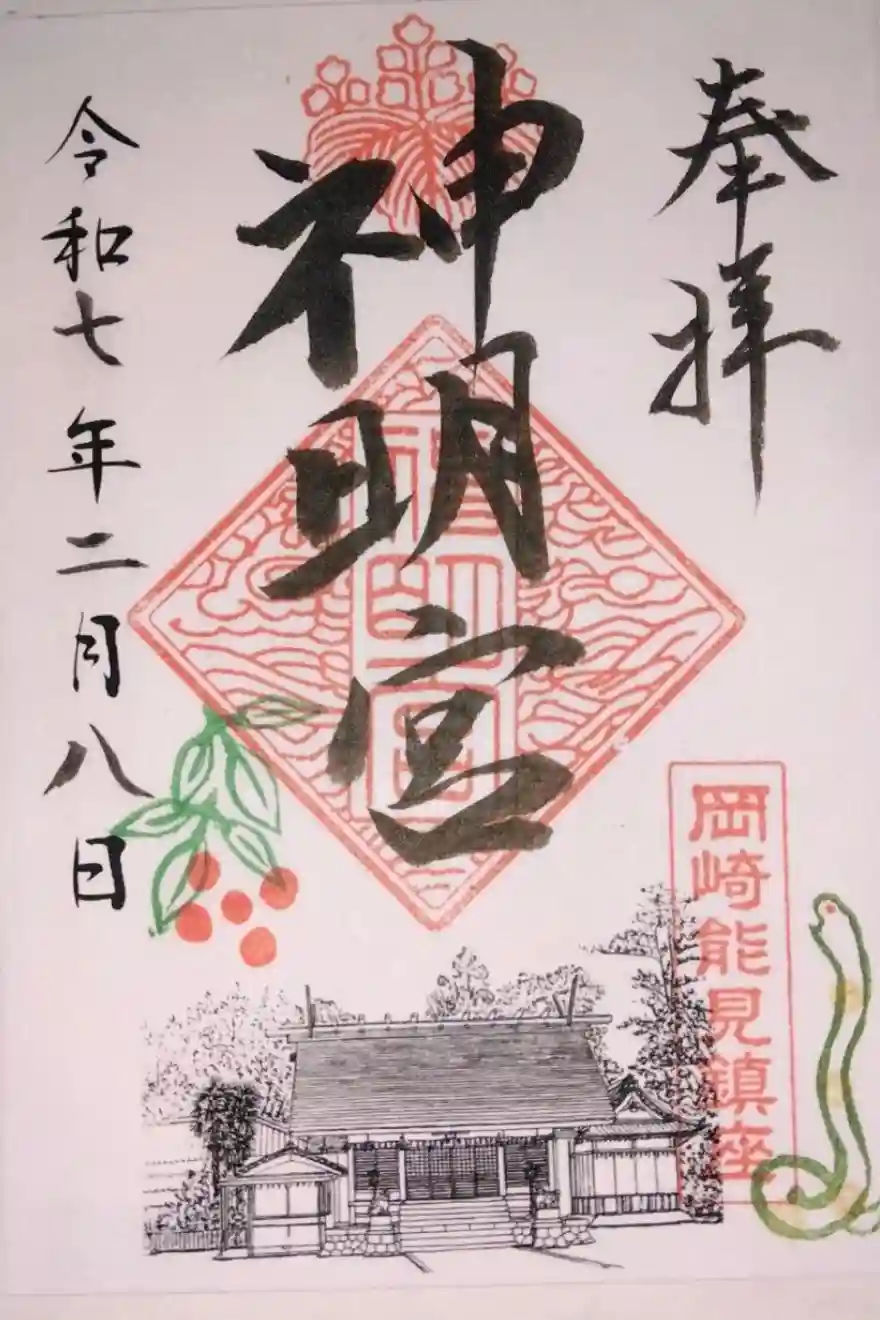 奉拝
神明宮
神明宮
岡崎能見鎮座
令和七年二月八日